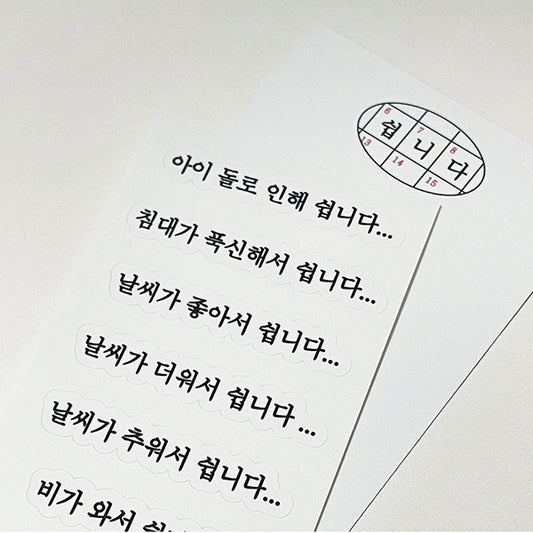 6 7 8
쉽 니 다
13 14 15
아이 돌로 인해 쉽니다...
침대가 푹신해서 쉽니다...
날씨가 좋아서 쉽니다...
날씨가 더워서 쉽니다...
날씨가 추워서 쉽니다...
비가 와서